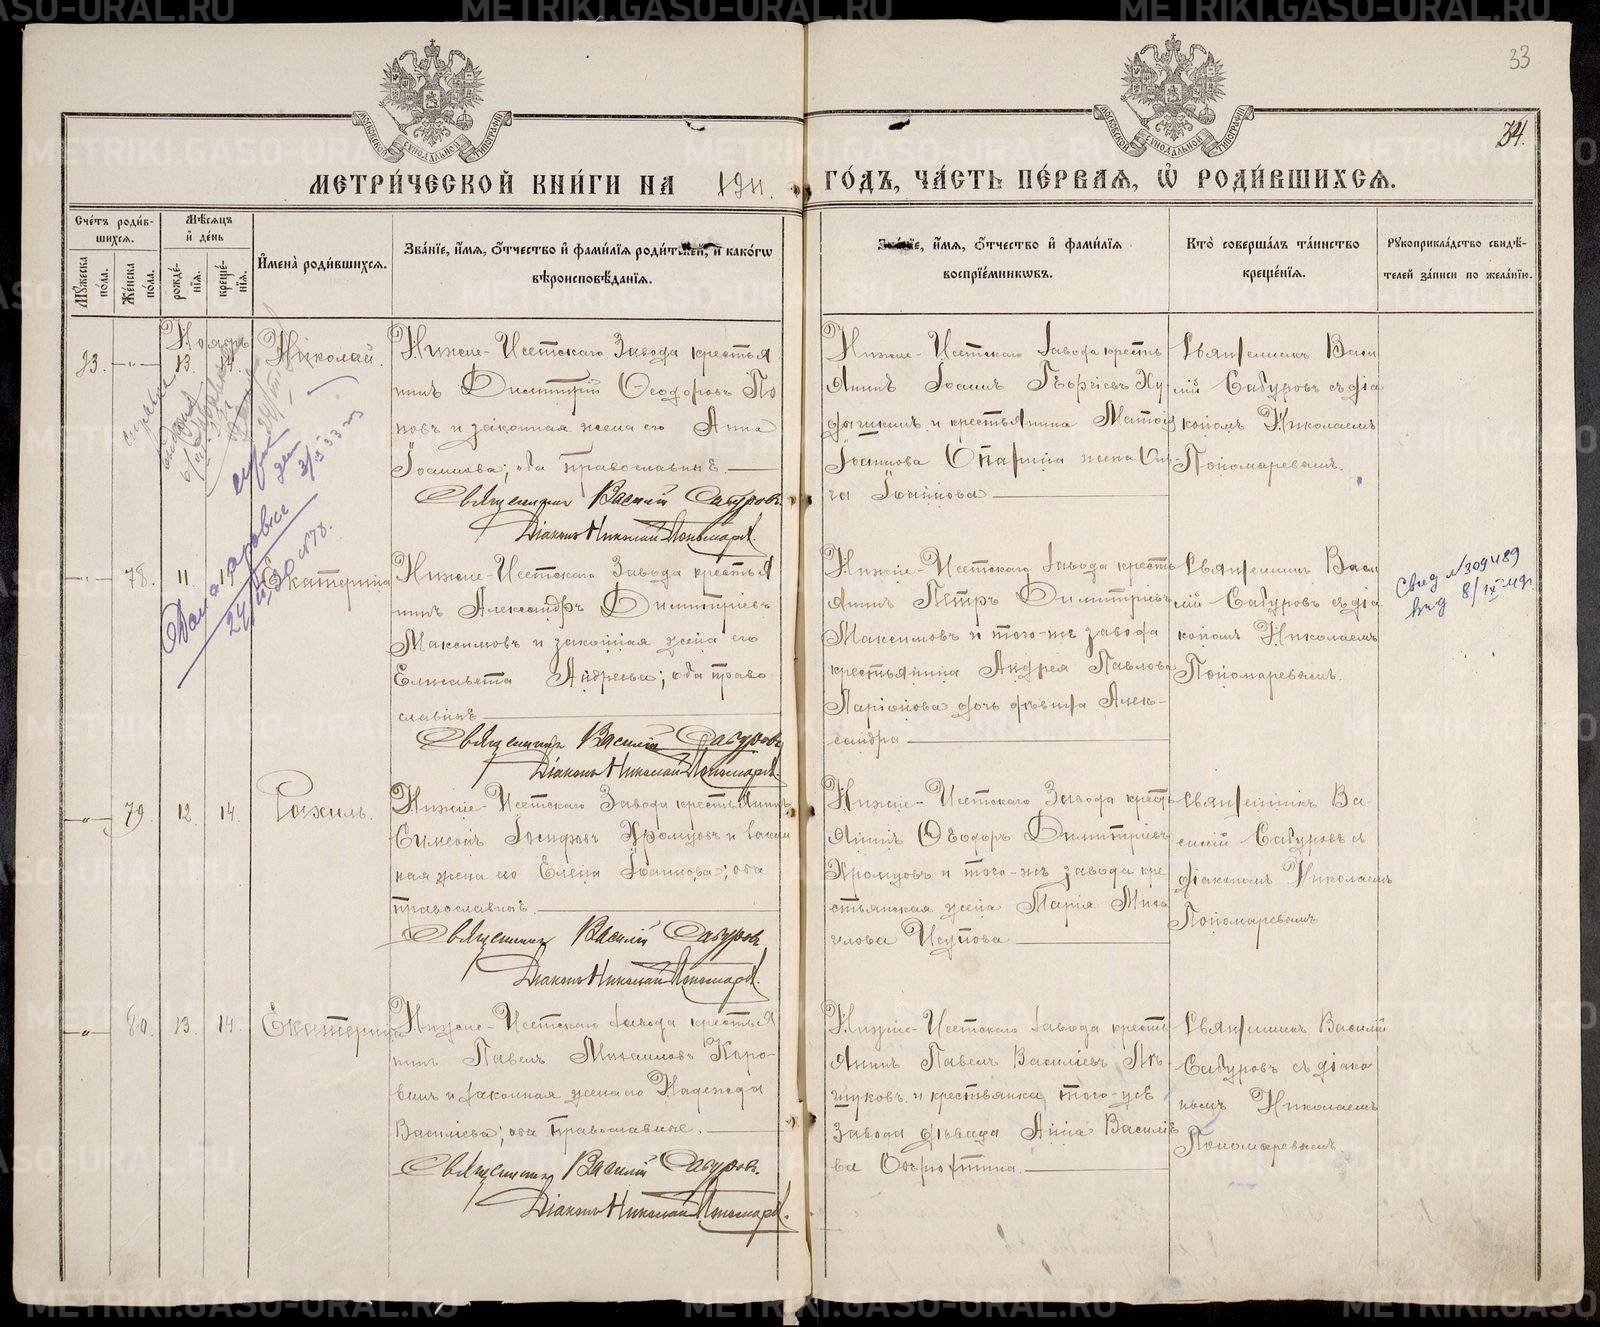 33
34.
МОСКОВСКОЙ СѴНОДАЛЬНОЙ ТИПОГРАФІИ
МОСКОВСКОЙ СѴНОДАЛЬНОЙ ТИПОГРАФІИ
МЕТРИ́ЧЕСКОЙ КНИ́ГИ НА 1911. ГО́ДЪ, ЧА́СТЬ ПЕ́РВАЯ, Ѽ РОДИ́ВШИХСЯ.
Сче́тъ роди́в-
шихся.
Му́жеска по́ла.
Же́нска по́ла.
Мѣ́сяцъ
и̑ де́нь
рожде́-
нїя.
креще́-
нїя.
И҆мена̀ роди́вшихся.
Зва́нїе, и҆́мя, ѻ҆́тчество и҆ фами́лїя роди́телей, и҆ како́гѡ
вѣроисповѣ́данїя.
Зва́нїе, и҆́мя, ѻ҆́тчество и҆ фами́лїя
восприе́мникѡвъ.
Кто̀ соверша́лъ та́инство
креще́нїя.
Рукоприкла́дство свидѣ́-
телей за́писи по жела́нїю.
Ноябрь
83. -"- 13. 14. Николай.
Нижне-Исетскаго Завода крестья
нинъ Димитрій Ѳеодоровъ По
повъ и законная жена его Анна
Іоаннова; оба православные.
Священникъ Василій Сабуровъ.
Діаконъ Николай Пономаревъ.
Нижне-Исетскаго Завода кресть
янинъ Іоаннъ Георгіевъ Ху
и крестьянина
Іоаннова жена
Іоаннова
Священникъ Васи
лій Сабуровъ съ діа
кономъ Николаемъ
Пономаревымъ.
-"- 78. 11. Екатерина
Нижне-Исетскаго Завода крестья
нинъ Александръ Димитріевъ
Максимовъ и законная жена его
Елисавета Андреева; оба право
славные
Священникъ Василій Сабуровъ
Діаконъ Николай Пономаревъ.
Нижне-Исетскаго Завода кресть
янинъ Петръ Димитріевъ
Максимовъ и того-же завода
крестьянина Андрея Павлова
Ларіонова дочь дѣвица Алек-
сандра
Священникъ Васи
лій Сабуровъ съ діа
кономъ Николаемъ
Пономаревымъ.
Свид №309489
выд 8/IX 24 г.
-"- 79. 12. 14. Рахиль.
Нижне-Исетскаго Завода крестьянинъ
Симеонъ Іосифовъ Хромцовъ и закон
ная жена его Елена Іоаннова; оба
православные.
Священникъ Василій Сабуровъ
Діаконъ Николай Пономаревъ.
Нижне-Исетскаго Завода кресть
янинъ Ѳеодоръ Димитріевъ
Хромцовъ и того-же завода кре
стьянская жена Марія Миха
илова Исупова
Священникъ Ва-
силій Сабуровъ съ
діакономъ Николаемъ
Пономаревымъ
-"- 80. 13. 14. Екатерина
Нижне-Исетскаго Завода крестья
нинъ Павелъ Михаиловъ Коро-
винъ и законная жена его Надежда
Василіева; оба православные.
Священникъ Василій Сабуровъ.
Діаконъ Николай Пономаревъ.
Нижне-Исетскаго Завода кресть
янинъ Павелъ Василіевъ
и крестьянка того-же
завода дѣвица Анна Василіе
ва
Священникъ Василій
Сабуровъ съ діако
номъ Николаемъ
Пономаревымъ
METRIKI.GASO-URAL.RU